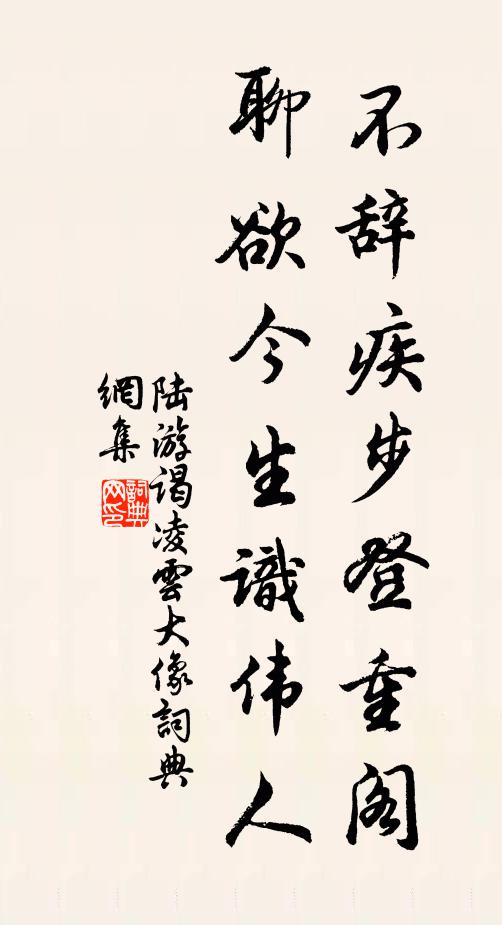 不辞疾步登重阁
聊欲今生識伟人
陆游谒凌雲大像詞典
網集
詞典网印